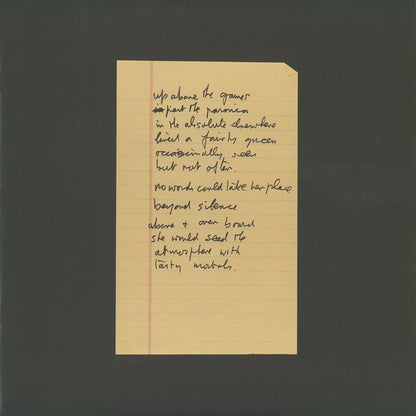 up above the games
past the paranoia
in the absolute elsewhere
lived a fairly queen
occasionally, seen
but not often.
no words could take her place
beyond silence
above + over board
she would seed the
atmosphere with
tasty morsels.